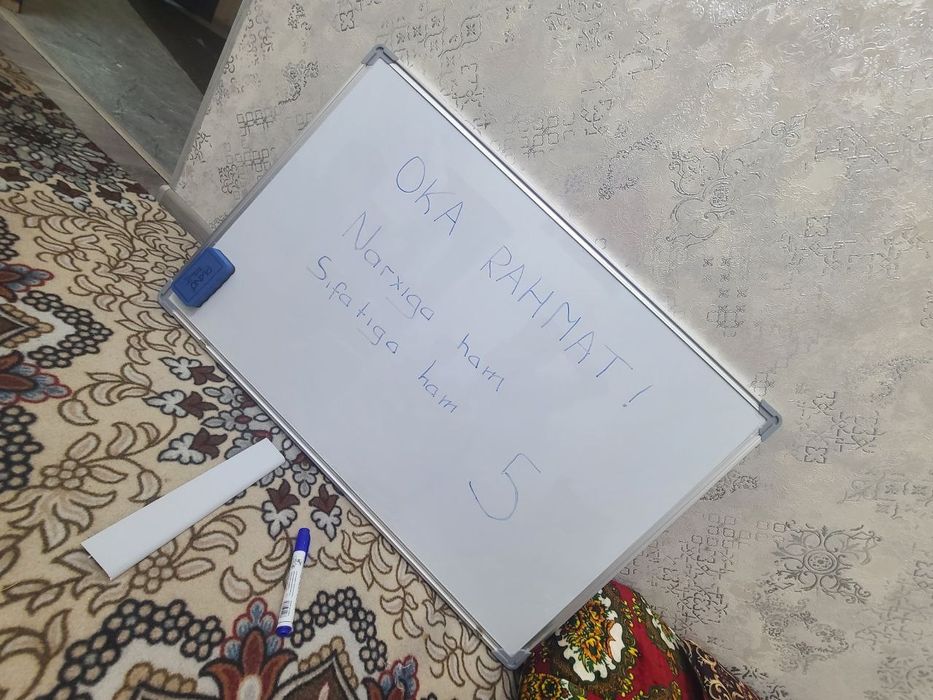 OKA RAHMAT!
Narxiga ham
Sifatiga ham
5